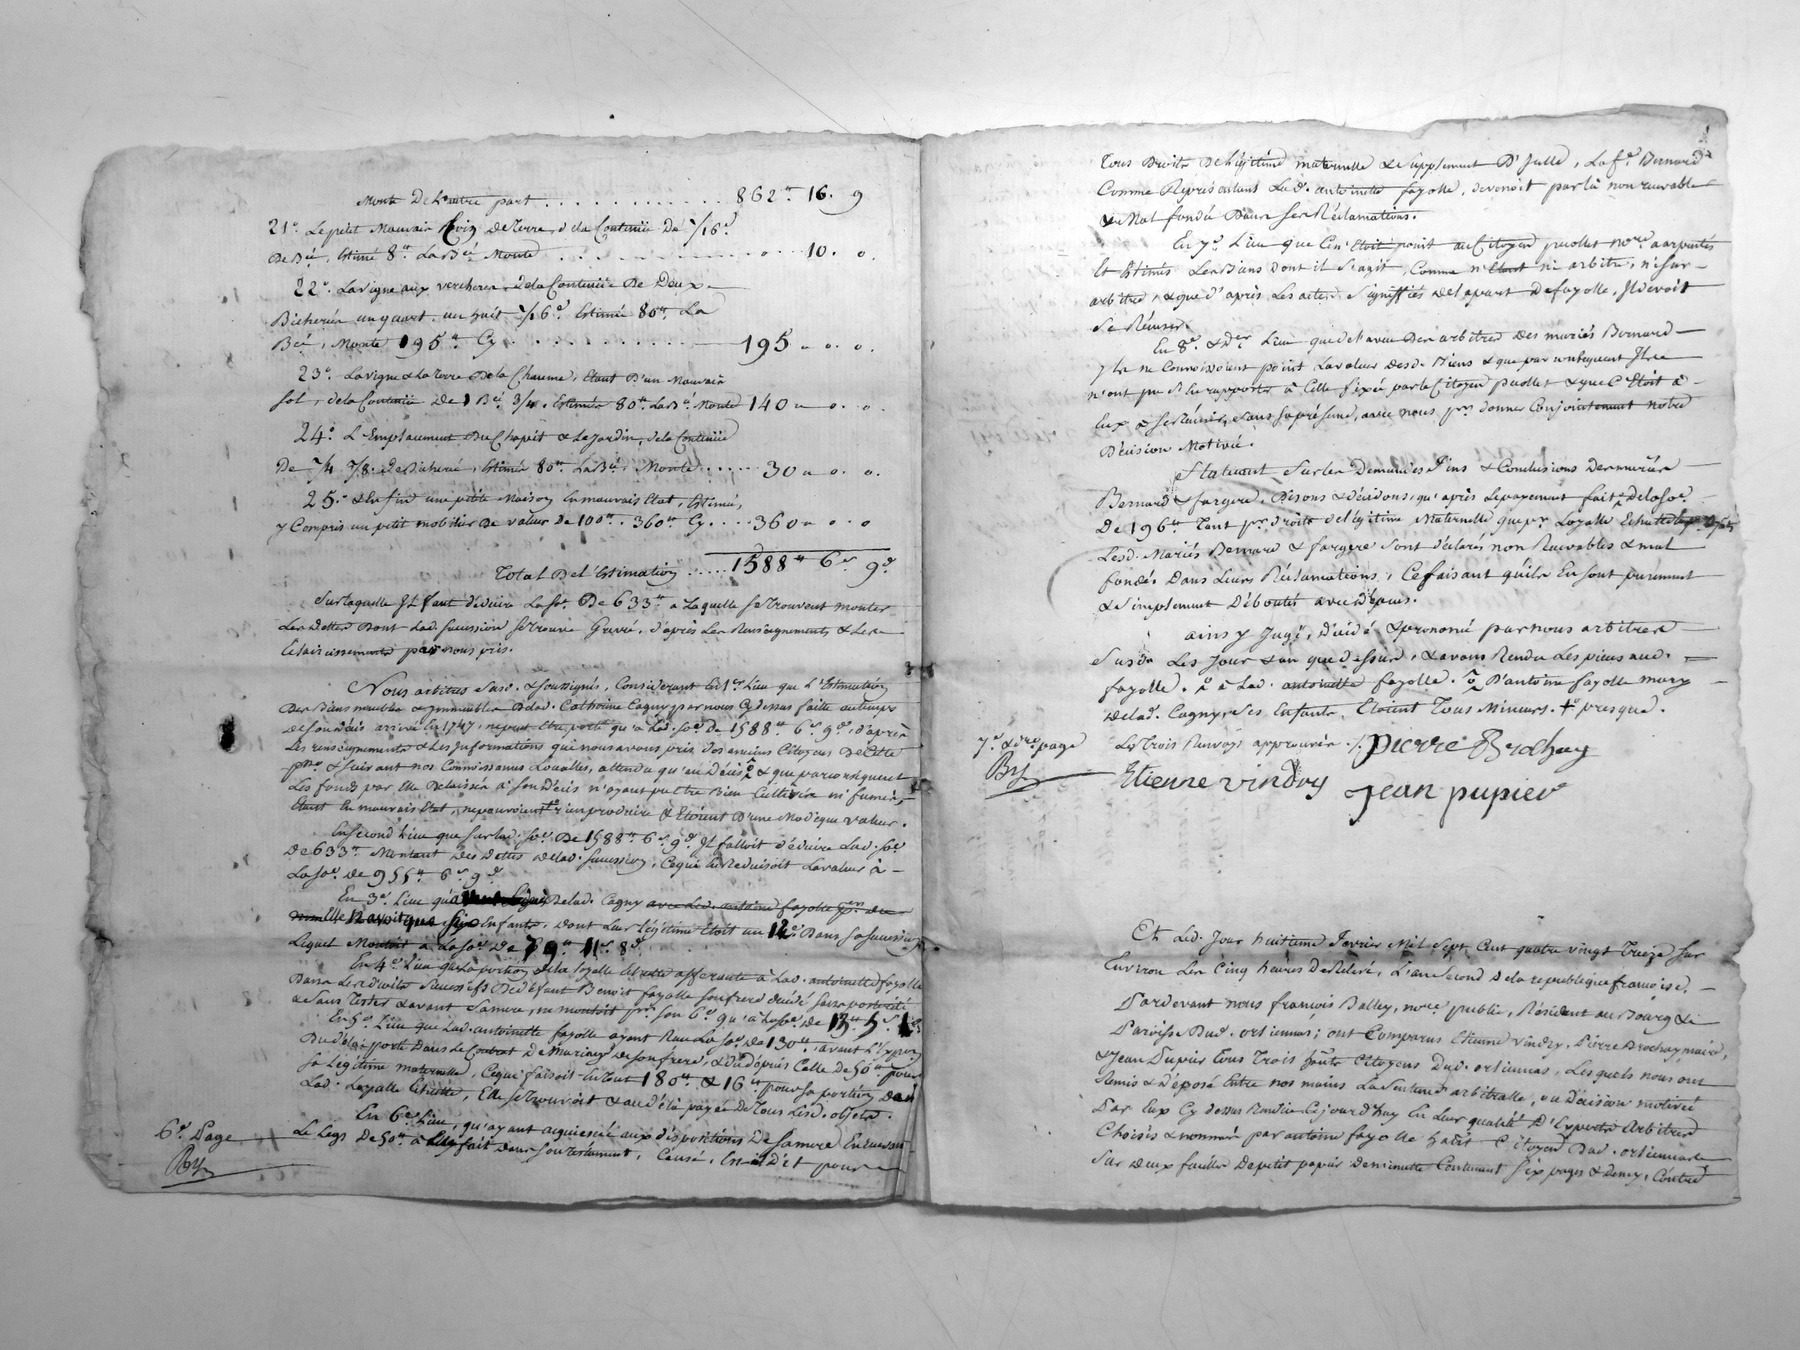 Monte De L'autre part . . . . . . . . . . . . 862ᵗᵗ 16. 9
21° Le petit Mauvais Coin de Terre, de la Contenüe De 1/16ᵉ
De Bée, Estimé 8ᵗᵗ La Bée Monte . . . . . . . . . 10. 0.
22° La vigne aux vercheres de la Contenüe De Deux
Bicherées un quart un huit 1/16ᵉ Estimée 80ᵗᵗ La
Bée, Monte 195ᵗᵗ Cy . . . . . . . . . 195 " 0. 0.
23° La vigne & La Terre De la Chaume, Etant D'un Mauvais
sol, de la Contenüe De 1 Bée 3/4, Estimée 80ᵗᵗ La Bée Monte 140 " 0. 0.
24° L'Emplacement Du Chapit & Le Jardin, de la Contenüe
De 1/4 1/8 De Bicherée, Estimée 80ᵗᵗ La Bée, Monte . . . . . 30 " 0. 0.
25° & Enfin une petite Maison En mauvais Etat, Estimée,
y Compris un petit mobilier De valeur De 100ᵗᵗ, 360ᵗᵗ Cy . . . . 360 " 0. 0
Total De L'Estimation . . . . . 1588ᵗᵗ 6ˢ 9ᵈ
Sur laquelle Il faut déduire La soe De 633ᵗᵗ a Laquelle se trouvent monter
Les dettes Dont Lad. succession se trouve Grevée, d'après Les Renseignements & Les
Eclaircissements par nous pris.
Nous arbitres susd. & soussignés, Considerant En 1er Lieu que L'Estimation
Des Biens meubles & immeubles De lad. Catherine Cagny par nous Cy dessus faitte au temps
de son décès arrivé En 1747, ne peut Etre porté qu'à Lad. soe De 1588ᵗᵗ 6ˢ 9ᵈ, d'après
Les renseignements & Les Informations que nous avons pris des anciens Citoyens De Cette
& suivant nos Connoissances Localles, attendu qu'au Décès & que par conséquent
Les fonds par Elle Delaissés à son Décès n'ayant pu Etre Bien Cultivés ni fumés,
Etant En mauvais Etat, ne pouvoient rien produire & Etoient D'une Modique valeur.
En second Lieu que sur lad. soe De 1588ᵗᵗ 6ˢ 9ᵈ Il falloit déduire Lad. soe
De 633ᵗᵗ Montant Des Dettes de lad. succession, Ce qui En Reduisoit La valeur à
La soe de 955ᵗᵗ 6ˢ 9ᵈ
En 3e Lieu de lad. Cagny
Elle N'avoit que Six Enfants, dont Leur Légitime Etoit un 12e Dans sa succession
Lequel Montoit à La soe De 79ᵗᵗ 11ˢ 8ᵈ
En 4e Lieu que La portion de la Loyalle Echutte afferante à Lad. antoinette fayolle
Dans Les droits successifs De défunt Benoit fayolle son frere décédé sans postérité
& sans Tester & avant Sa mere, ne montoit pr. son 6e qu'à La soe de 13ᵗᵗ 5ˢ
En 5e Lieu que Lad. antoinette fayolle ayant Reçu La soe De 130ᵗᵗ, avant L'Expon
Du délai porté Dans Le Contrat De Mariage De son frere, & Du depuis Celle De 50ᵗᵗ pour
sa Légitime maternelle, Ce qui faisoit En Tout 180ᵗᵗ & 16ᵗᵗ pour sa portion De
Lad. Loyalle Echutte, Elle se trouvoit & au delà payée De Tous Lesd. objets.
En 6e Lieu, qu'ayant acquiescée aux dispositions De sa mere En recevant
Le Legs De 50ᵗᵗ à Elle fait dans son testament, Causé, Est il dit pour
6e Page
Tous Droits De Légitime maternelle & de supplement D'Icelle, La fe Bernard
Comme Représentant Lad. antoinette fayolle, devenoit par là non recevable
& Mal fondée Dans ses Réclamations.
En 7e Lieu que Ce n'Etoit point au Citoyen puollet nore a arpenter
& Estimer Les Biens dont il s'agit, Comme n'Etant ni arbitre, ni sur-
arbitre, & que d'après Les actes Signiffiés de la part De fayolle, Il devoit
se Récuser.
En 8e & der Lieu que de l'aveu Des arbitres des mariés Bernard
Ils ne Connoissoient point La valeur desd. Biens & que par conséquent Ils
n'ont pu s'En rapporter à Celle fixée par le Citoyen puollet & que C'Etoit à
Eux à se Réunir, sans sa présence, avec nous, pr donner Conjointement notre
Décision Motivée.
Statuant Sur les Demandes, Fins & Conclusions Des mariés
Bernard & fargere, Disons & décidons, qu'après Le payement fait de la soe
De 196ᵗᵗ Tant pr droits de Légitime Maternelle que pr Loyalle Echutte
Lesd. Mariés Bernard & fargere sont déclarés non Recevables & mal
fondés Dans Leurs Réclamations, Ce faisant qu'ils En sont purement
& simplement Déboutés avec dépens.
ainsy Jugé, Décidé & prononcé par nous arbitres
Susds Les Jour & an que dessus, & avons Rendu Les pieces aud.
fayolle. à Lad. antoinette fayolle. D'antoine fayolle mary
de lad. Cagny, ses Enfants, Etoient Tous Mineurs. presque.
7e & dre page Les Trois Renvoys approuvés. pierre Brochay
Etienne vindry jean pupier
Et Led. Jour huitieme Fevrier Mil Sept Cent quatre vingt Treize sur
Environ Les Cinq heures De Relevé, L'an second De la republique françoise,
Pardevant nous françois Balley, nore public, Résident au Bourg &
Paroisse Dud. ortiennas; ont Comparus Etienne vindry, Pierre Brochay maire,
& Jean Pupier Tous Trois habts Citoyens Dud. ortiennas, Lesquels nous ont
Remis & déposé Entre nos mains La Sentence arbitralle, ou Décision motivée
Par Eux Cy dessus Rendue Cejourd'huy En Leur qualité D'Experts Arbitres
Choisis & nommés par antoine fayolle habit Citoyen Dud. ortiennas
Sur deux feuilles De petit papier De minutte Contenant Six pages & demy, Contre